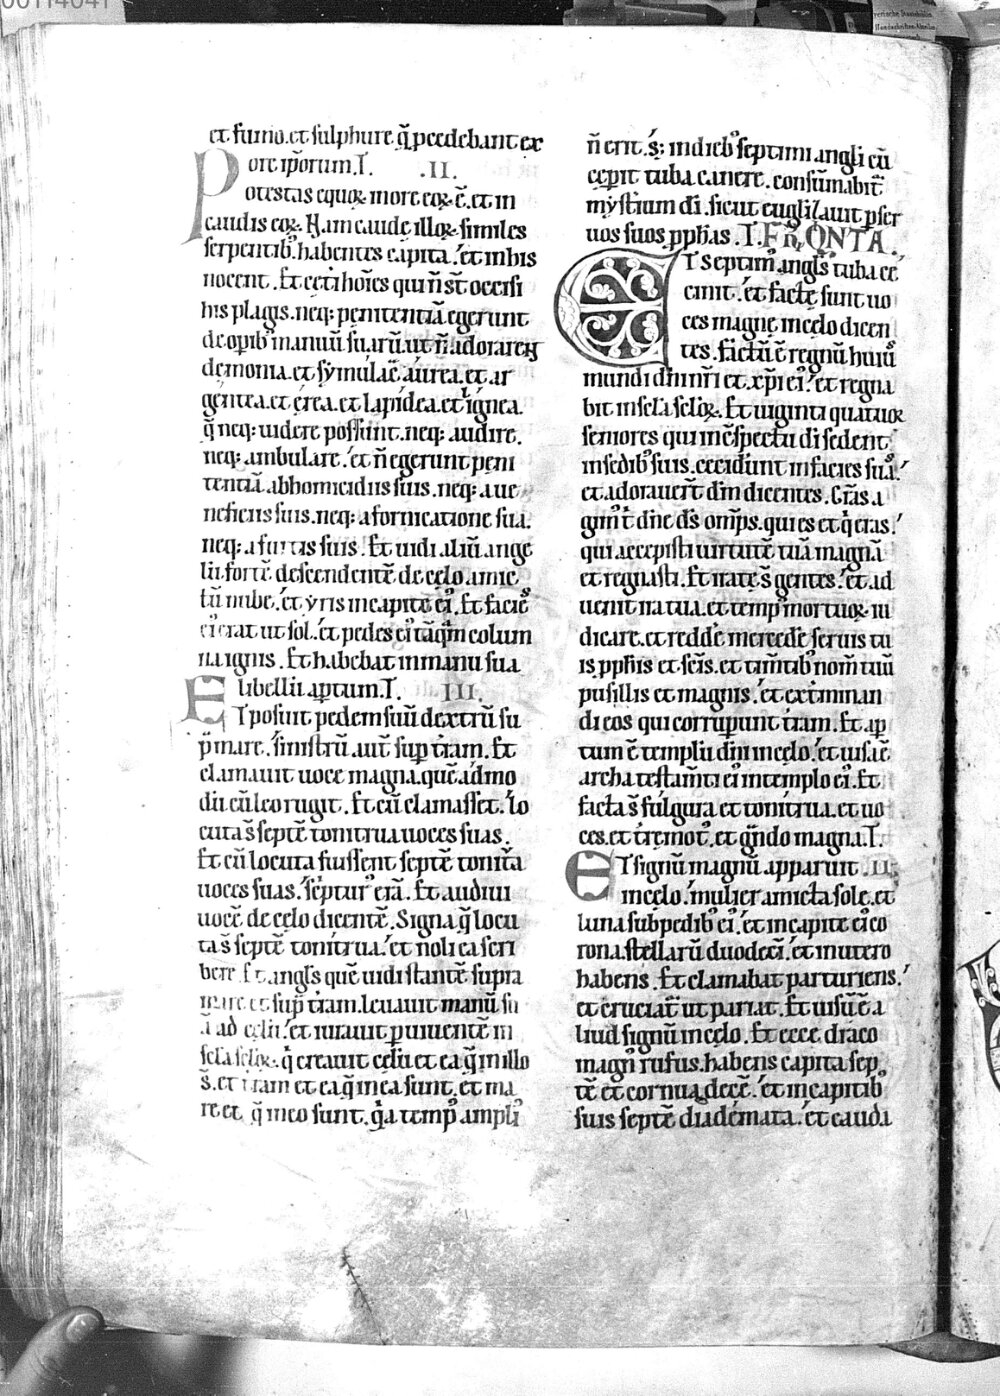 00114041
et fumo. et sulphure. q̄ pcedebant ex
ore ip̄orum. T. .II.
Potestas equoꝝ in ore eoꝝ. ē. et in
caudis eoꝝ. Nam caude illoꝝ similes
serpentib; habentes capita. et in his
nocent. Et cet̄i hoīes qui n̄ st̄ occisi
his plagis. neq; penitentiā egerunt
de opib; manuū suarū. ut n̄ adorarent
demonia. et symulac̄. aurea. et ar
gentea. et ęrea. et lapidea. et ignea.
q̄ neq; uidere possunt. neq; audire.
neq; ambulare. et n̄ egerunt peni
tentiā ab homicidiis suis. neq; a ue
neficiis suis. neq; a fornicatione sua.
neq; a furtis suis. Et uidi aliū ange
lū fortē descendentē de cęlo. amic
tū nube. et yris in capite ei᷒. Et facie᷒
ei᷒ erat ut sol. et pedes ei᷒ tāq̄m colum
na ignis. Et habebat in manu sua
libellū aptum. T. III.
ET posuit pedem suū dextrū su
p mare. sinistrū. aut̄ sup t̄ram. Et
clamauit uoce magna. quēadmo
dū cū leo rugit. Et cū clamasset. lo
cuta s̄ septē tonitrua uoces suas.
Et cū locuta fuissent septē tonit̄a
uoces suas. scriptur᷒ erā. Et audiui
uocē de cęlo dicentē. Signa q̄ locu
ta s̄ septē tonitrua. et noli ea scri
bere. Et angl̄s quē uidi stantē supra
mare. et sup t̄ram. leuauit manū su
ā ad cęlū. et iurauit p uiuentē in
sc̄la sc̄loꝝ. q̄ creauit cęlū et ea q̄ in illo
s̄. et t̄ram et ea q̄ in ea sunt. et ma
re et q̄ in eo sunt. q̄a temp᷒ ampli᷒
n̄ erit. s; in dieb; septimi angli cū
cęperit tuba canere. consūmabit᷑
mysterium di. sicut euglizauit p ser
uos suos pphās. T. FRONTA.
ET septim᷒ angl̄s tuba ce
cinit. et factę sunt uo
ces magnę in cęlo dicen
tes. Factū ē regnū hui᷒
mundi dni nr̄i et xpī ei᷒. et regna
bit in sc̄la sc̄loꝝ. Et uiginti quatuor
seniores qui in c̄spectu di sedent
in sedib; suis. ceciderunt in facies suas.
et adorauer̄t dm̄ dicentes. Gr̄as a
gim᷒ t̄ dn̄e ds̄ omp̄s. qui es et q̄ eras.
qui accepisti uirtutē tuā magnā
et regnasti. Et irate s̄ gentes. et ad
uenit ira tua. et temp᷒ mortuoꝝ iu
dicare. et reddē mercedē seruis tu
is pphis et sc̄is. et tim̄tib; nom̄ tuū
pusillis et magnis. et extminan
di eos qui corruperunt t̄ram. Et ap
tum ē templū dn̄i in cęlo. et uisa ē
archa testam̄ti ei᷒ in templo ei᷒. Et
facta s̄ fulgura et tonitrua. et uo
ces. et t̄remot᷒. et g̃ndo magna. T.
ET signū magnū apparuit .II.
in cęlo. mulier amicta sole. et
luna sub pedib; ei᷒. et in capite ei᷒ co
rona stellarū duodeci. et in utero
habens. Et clamabat parturiens.
et cruciat᷑ ut pariat. Et uisū ē a
liud signū in cęlo. Et ecce draco
magn᷒ rufus. habens capita sep
tē et cornua decē. et in capitib;
suis septē diademata. et cauda